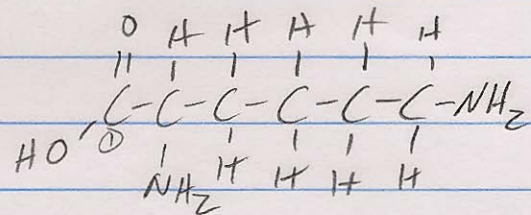 O H H H H H
C-C-C-C-C-C-NH2
HO ①
NH2 H H H H